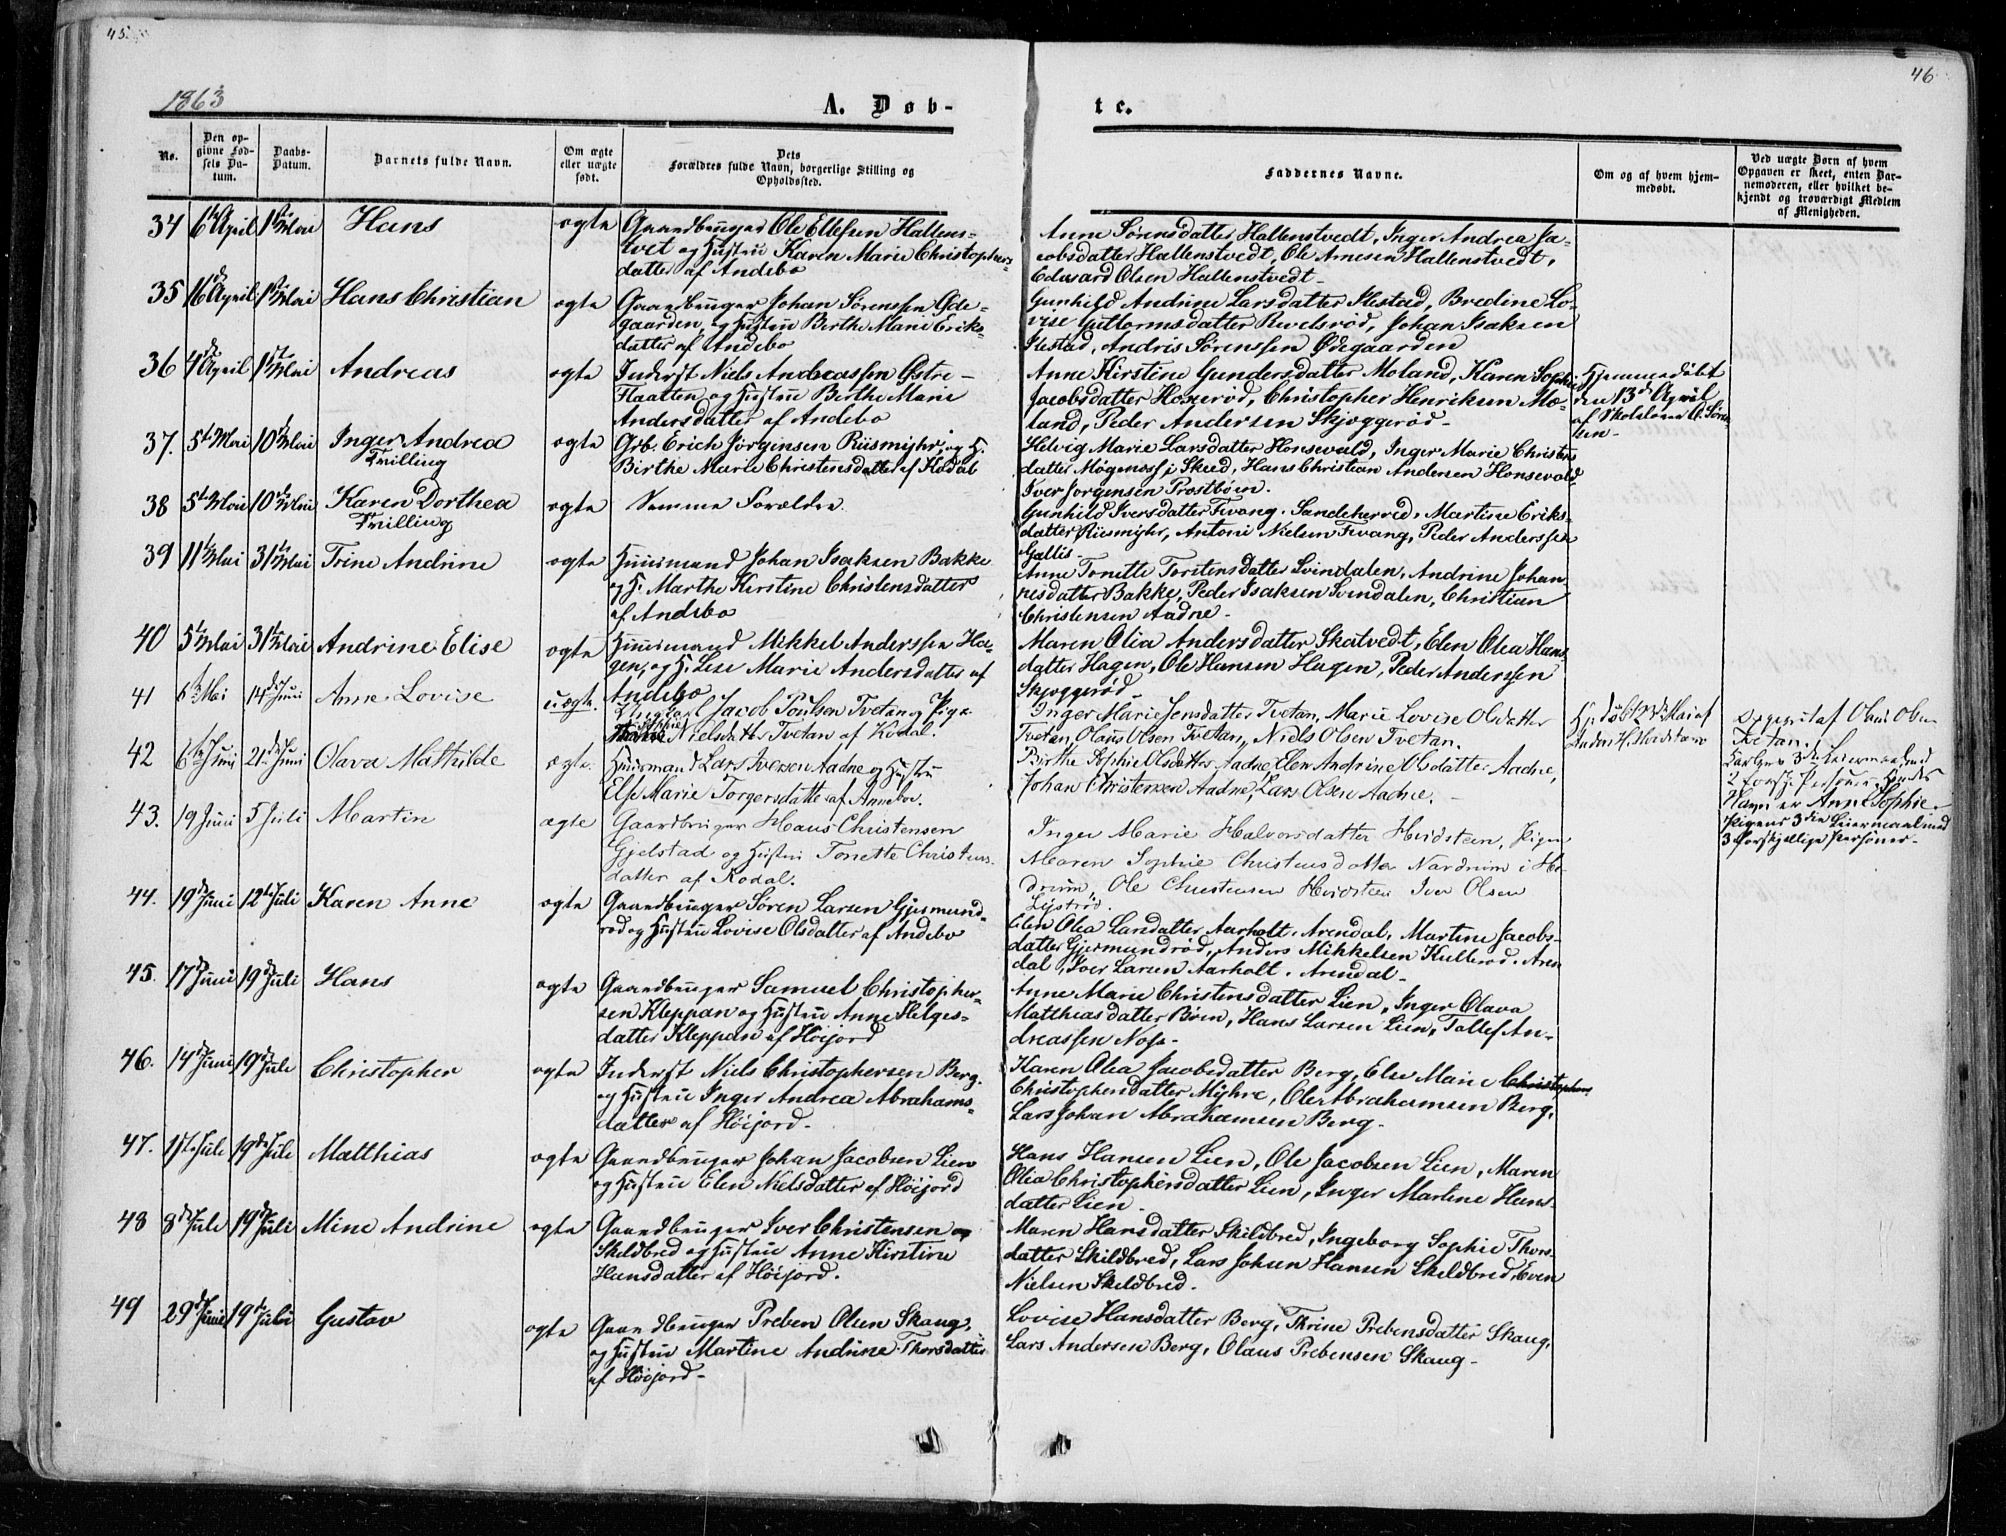 45
46
1863
A. Døb-
te.
No.
Den opgivne Fødsels Datum.
Daabs-Datum.
Barnets fulde Navn.
Om ægte eller uægte født.
Dets Forældres fulde Navn, borgerlige Stilling og Opholdssted.
Faddernes Navne.
Om og af hvem hjemmedøbt.
Ved uægte Børn af hvem Opgaven er skeet, enten Barnemoderen, eller hvilket bekjendt og troværdigt Medlem af Menigheden.
34 6te April 1ste Mai Hans ægte Gaardbruger Ole Ellefsen Hallens-
tvet og Hustru Karen Marie Christophers-
datter af Andebo
Anne Sørensdatter Hallenstvedt, Inger Andrea Ja-
cobsdatter Hallenstvedt, Ole Arnesen Hallenstvedt,
Edvard Olsen Hallenstvedt-
35 16de April 1ste Mai Hans Christian ægte Gaardbruger Johan Sørenssen Øde-
gaarden, og Hustru Berthe Marie Eriks-
datter af Andebo
Gunhild Andrine Larsdatter Ilestad, Bredine Lo-
vise Guttormsdatter Revelsrød, Johan Isaksen
Ilestad, Andris Sørenssen Ødegaarden
36 4de April 1ste Mai Andreas ægte Inderst Niels Andreassen Østre-
Flaatten og Hustru Birthe Marie
Andersdatter af Andebo
Anne Kirstine Gundersdatter Moland, Karen Sophie
Jacobsdatter Honerød, Christopher Henriksen Mo-
land, Peder Andersen Skjøggerød-
Hjemmedøbt
den 13de April
af Skolelærer O. Søren-
sen-
37. 5te Mai 10de Mai Inger Andrea
Tvilling
ægte Grb. Erich Jørgensen Riismyhr, og H.
Birthe Marie Christensdatter af Kodal
Helvig Marie Larsdatter Honsevald, Inger Marie Christens-
datter Møgenøss i Skied, Hans Christian Andersen Honsevald,
Iver Jørgensen Prestbøen.
38 5te Mai 10de Mai Karen Dorthea
Tvilling
ægte Samme Forældre.
Gunhild Iversdatter Fevang, Sandeherred, Martine Eriks-
datter Riismyhr, Antoni Nielsen Fevang, Peder Anderssen
Gallis-
39 11te Mai 31te Mai Trine Andrine ægte Huusmand Johan Isaksen Bakke
og H. Marthe Kirstine Christensdatter
af Andebo
Anne Tonette Torstensdatter Svindalen, Andrine Johan-
nesdatter Bakke, Peder Isaksen Svendalen, Christian
Christensen Aadne-
40 5te Mai 31te Mai Andrine Elise ægte Huusmand Mikkel Anderssen Ha-
gen, og H. Lise Marie Andersdatter af
Andebo
Maren Olia Andersdatter Skatvedt, Elen Olea Hans-
datter Hagen, Ole Hansen Hagen, Peder Anderssen
Skjøggerød-
41 6te Mai 14de Juni Anne Lovise uægte. Ungkarl Jacob Poulsen Tvetan og Pige
Nielsdatter Tvetan af Kodal.
Inger Marie Jensdatter Tvetan, Marie Lovise Olsdatter
Tvetan, Olaus Olsen Tvetan, Niels Olsen Tvetan.
Hjdøbt 2de Mai af
Anders H. Hvidsteen
Opgivet af Olaus Olsen
Tvetan.
Karlens 3die Leiermaal med
2 forskj. Personer. Hendes
Navn er Anne Sophie.
Pigens 3die Leiermaal med
3 forskjellige Personer-
42 6te Juni 21de Juni Olava Mathilde ægte. Huusmand Lars Iversen Aadne og Hustru
Else Marie Torgersdatter af Anneboe.
Birthe Sophie Olsdatter Aadne, Elen Andrine Olsdatter Aadne,
Johan Christensen Aadne, Lars Olsen Aadne. -
43. 19 Juni 5 Juli Martin ægte Gaardbruger Hans Christensen
Gjelstad og Hustru Tonette Christens-
datter af Kodal.
Inger Marie Halvorsdatter Hvidsteen, Pigen
Maren Sophie Christensdatter Nordrum i He-
drum, Ole Christensen Hvidsteen Iver Olsen
Lystrød.
44. 19de Juni 12te Juli Karen Anne ægte Gaardbruger Søren Larsen Gjermund-
rød og Hustru Lovise Olsdatter af Andebo
Elen Olea Larsdatter Aarholt, Arendal, Martine Jacobs-
datter Gjermundrød, Anders Mikkelsen Kullerød, Aren-
dal, Iver Larsen Aarholt, Arendal-
45. 17de Juni 19de Juli Hans ægte Gaardbruger Samuel Christopher-
sen Kleppan og Hustru Anne Helges-
datter Kleppan af Høijord
Anne Marie Christensdatter Lien, Inger Olava
Matthiasdatter Bøen, Hans Larsen Lien, Tollef An-
dreassen Nose-
46. 14de Juni 19de Jule Christopher ægte Inderst Niels Christophersen Berg.
og Hustru Inger Andrea Abrahams-
datter af Høijord-
Karen Olea Jacobsdatter Berg, Else Marie Christophers
Christophersdatter Myhre, Ole Abrahamsen Berg,
Lars Johan Abrahamsen Berg-
47. 1ste Jule 19de Jule Matthias ægte Gaardbruger Johan Jacobsen Lien
og Hustru Elen Nielsdatter af Høijord
Hans Hansen Lien, Ole Jacobsen Lien, Maren
Olea Christophersdatter Lien, Inger Martine Hans-
datter Lien-
48 8de Jule 19de Juli Mine Andrine ægte Gaardbruger Iver Christensen og
Skildbred og Hustru Anne Kirstine
Hansdatter af Høijord.
Maren Hansdatter Skildbred, Ingeborg Sophie Thors-
datter Skildbred, Lars Johan Hansen Skildbred, Even
Nielsen Skildbred.
49 29de Juni 19de Juli Gustav ægte Gaardbruger Preben Olsen Skaug,
og Hustru Martine Andrine Thorsdatter
af Høijord-
Lovise Hansdatter Berg, Thrine Prebensdatter Skaug,
Lars Andersen Berg, Olaus Prebensen Skaug-